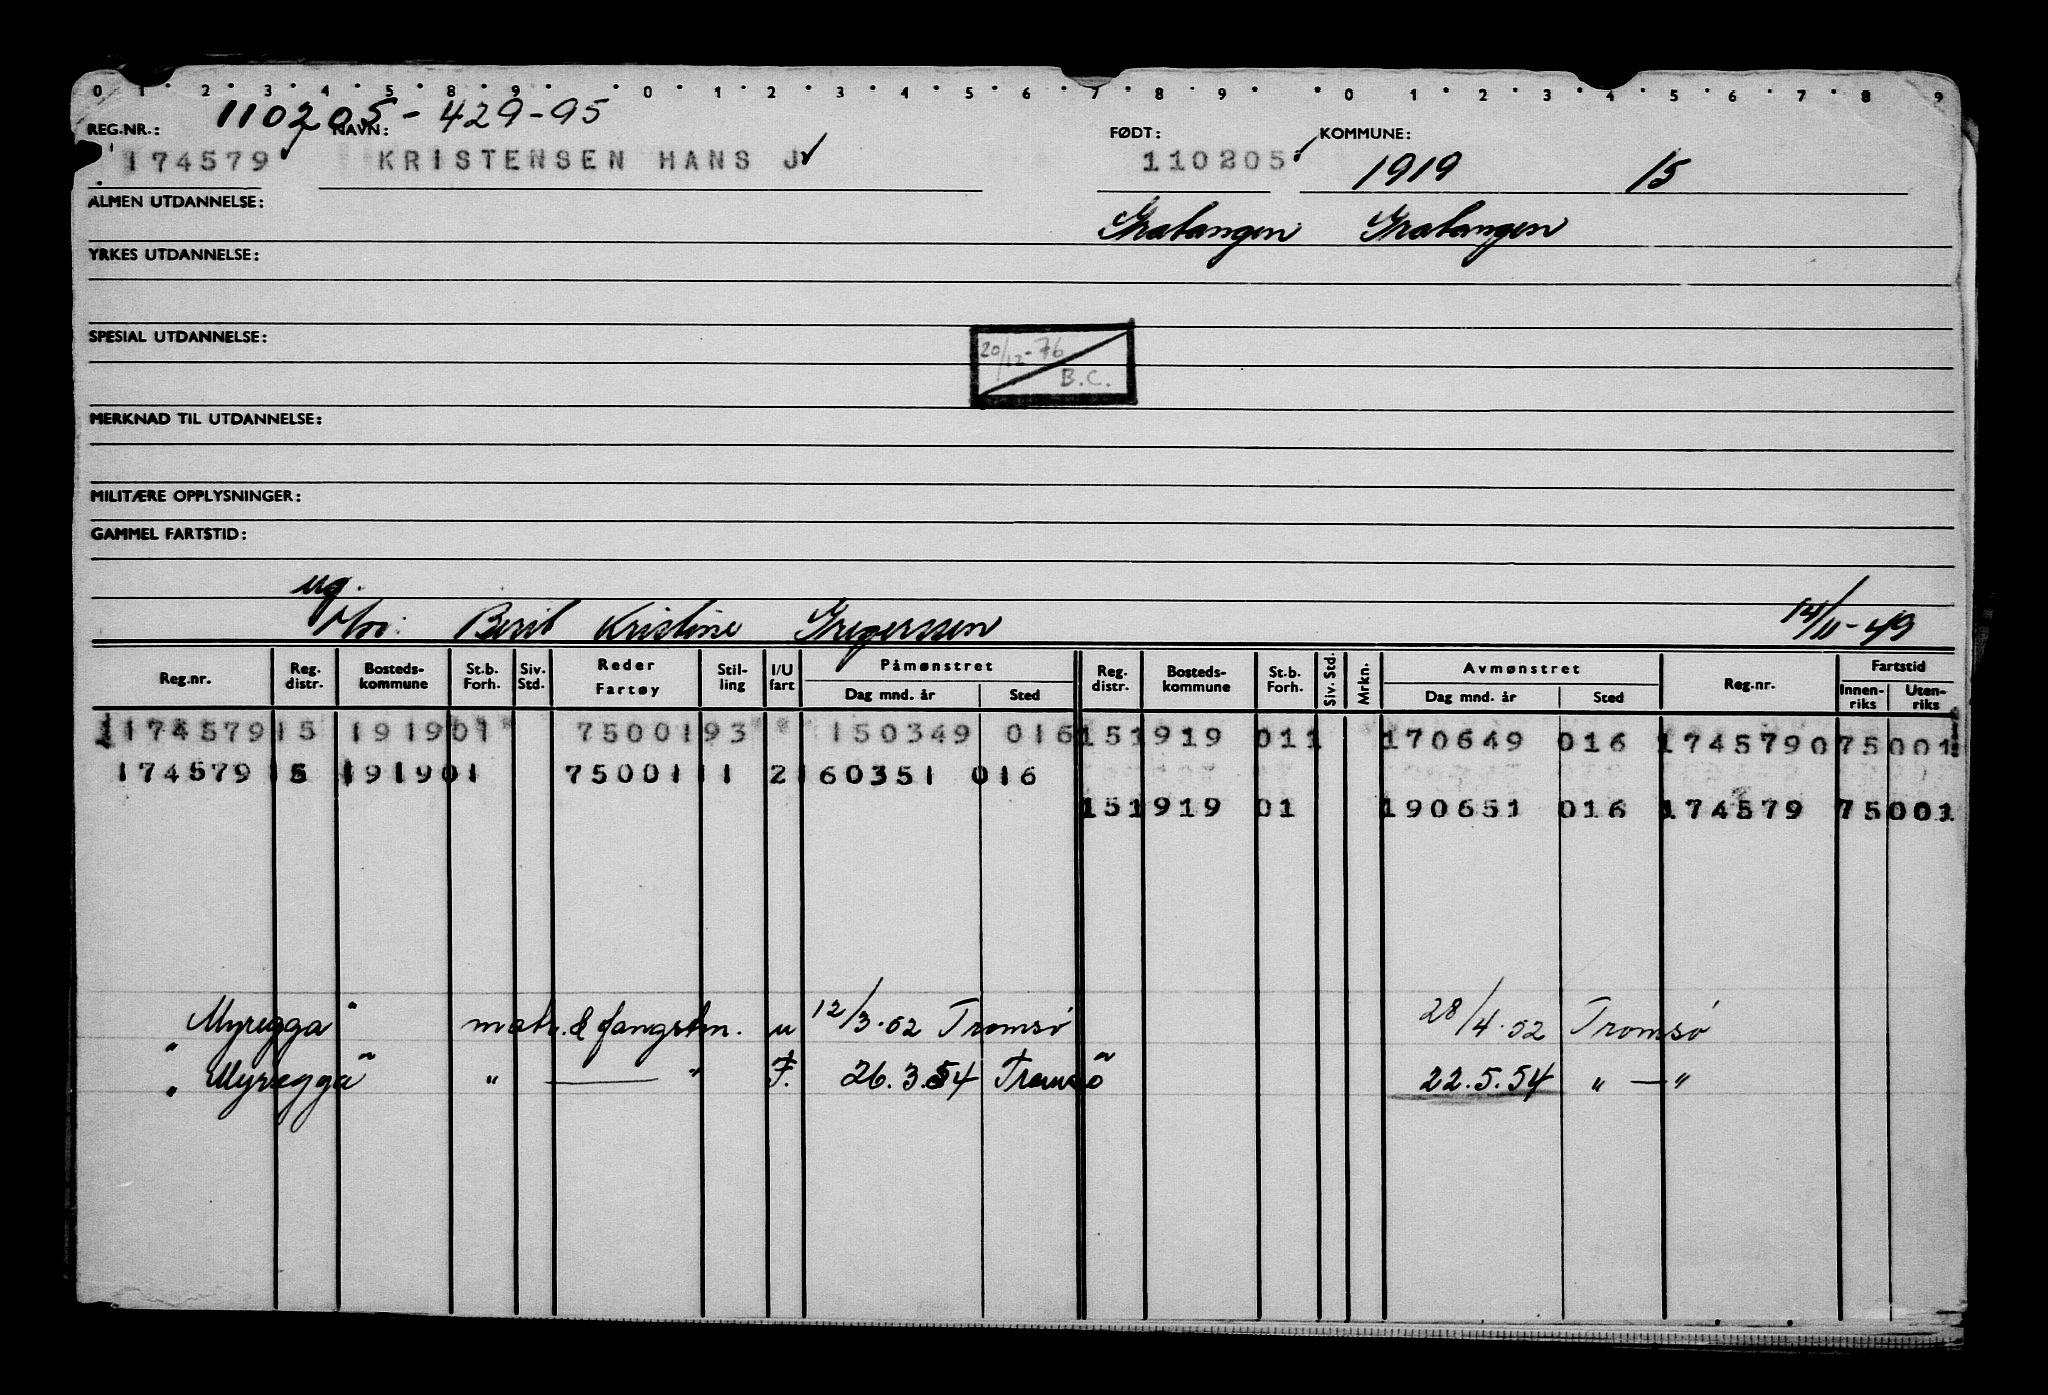 0 1 2 3 4 5 8 9 0 1 2 3 4 5 6 7 8 9 0 1 2 3 4 5 6 7 8 9
110205-429-95
REG.NR.: NAVN: FØDT: KOMMUNE:
174579 KRISTENSEN HANS J 110205 1919 15
ALMEN UTDANNELSE: Gratangen Gratangen
YRKES UTDANNELSE:
SPESIAL UTDANNELSE:
20/12-76
B.C.
MERKNAD TIL UTDANNELSE:
MILITÆRE OPPLYSNINGER:
GAMMEL FARTSTID:
ug.
Mor: Berit Kristine Gregerssen 14/11-49
Reg.nr. Reg. distr. Bosteds-kommune St.b. Forh. Siv. Std. Reder Fartøy Stil-ling I/U fart Påmønstret Dag mnd. år Sted Reg. distr. Bosteds-kommune St.b. Forh. Siv. Std. Mrkn. Avmønstret Dag mnd. år Sted Reg.nr. Fartstid Innen-riks Uten-riks
174579 15 1919 01 75001 93 150349 016 15 1919 011 170649 016 174579 075001
174579 15 1919 01 75001 11 2 160351 016
15 1919 01 190651 016 174579 75001
"Myregga" matr. & fangstm. u 12/3.52 Tromsø 28/4.52 Tromsø
"Myregga" " — " F. 26.3.54 Tromsö 22.5.54 " — "